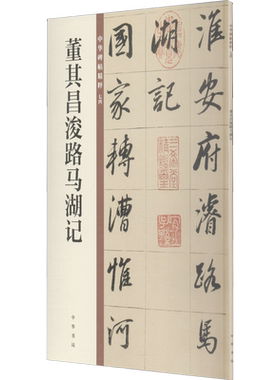 淮安府濬路馬
湖記
國家轉漕惟河
中华碑帖精粹
董其昌浚路马湖记
中華書局